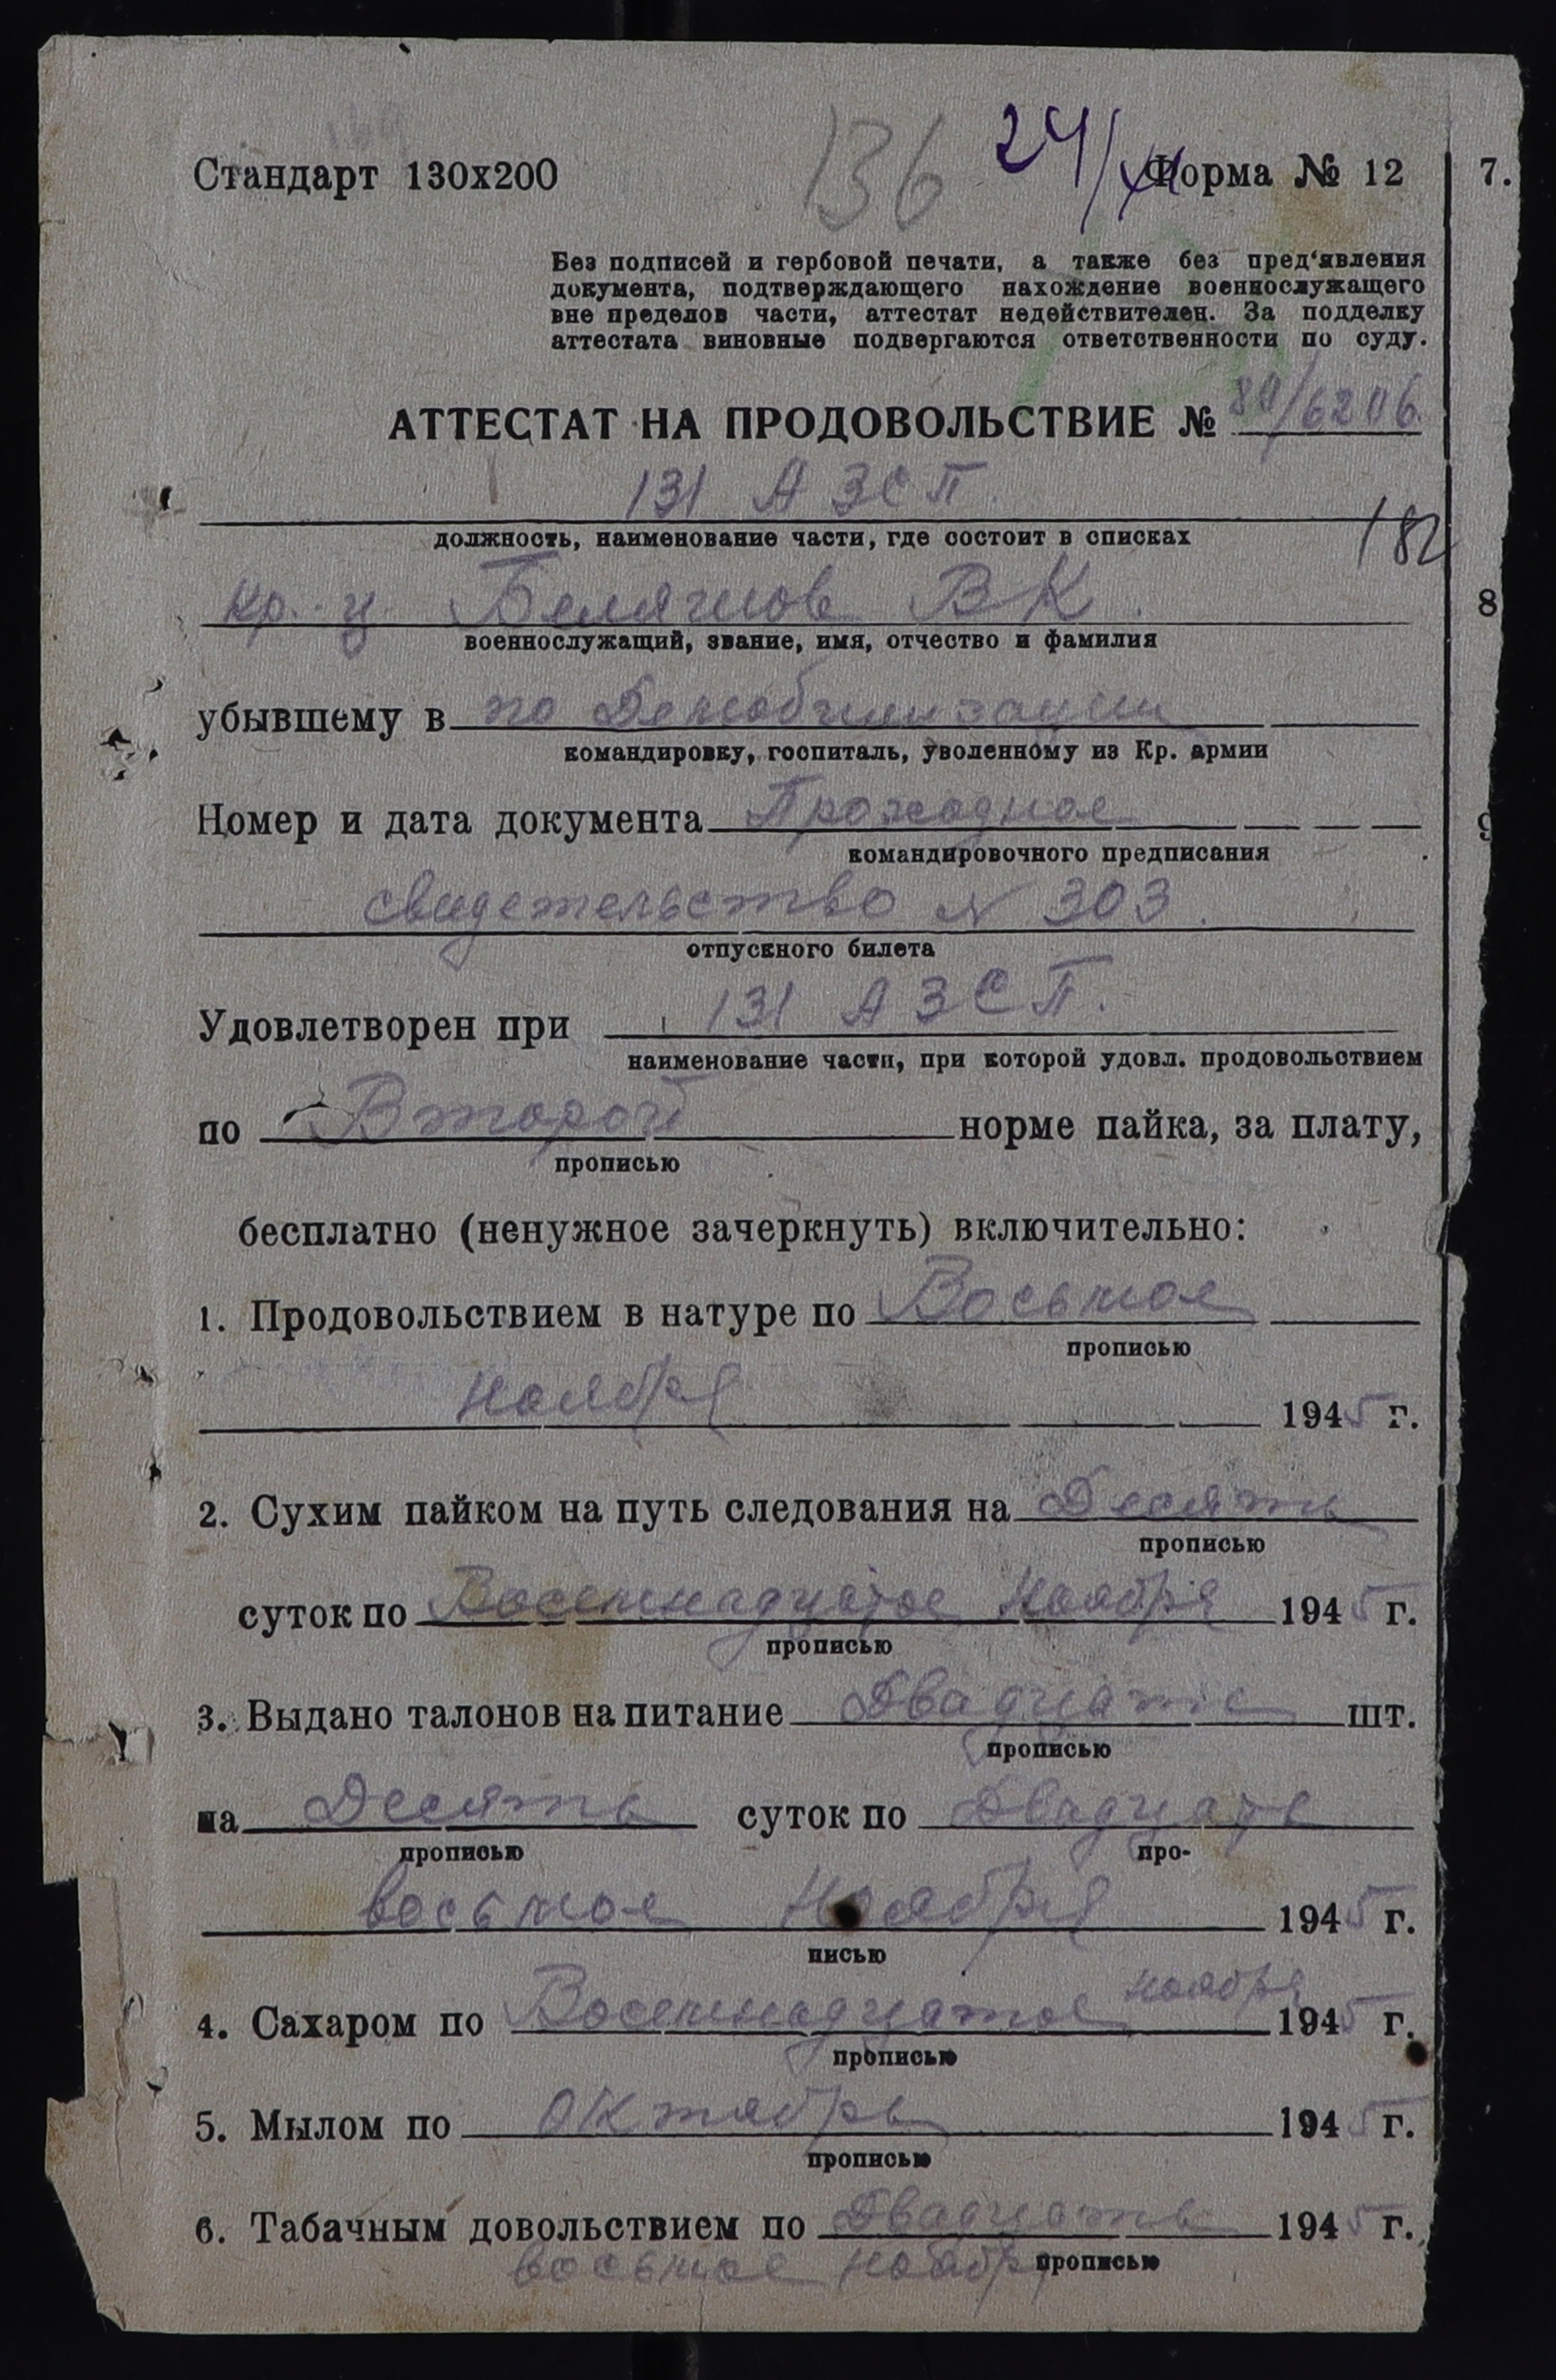 136 24/XII
Стандарт 130х200 Форма № 12 7.
Без подписей и гербовой печати, а также без пред‘явления
документа, подтверждающего нахождение военнослужащего
вне пределов части, аттестат недействителен. За подделку
аттестата виновные подвергаются ответственности по суду.
АТТЕСТАТ НА ПРОДОВОЛЬСТВИЕ № /6206
131 АЗСП.
должность, наименование части, где состоит в списках
182
кр-ц ВК. 8
военнослужащий, звание, имя, отчество и фамилия
убывшему в по Демобилизации
командировку, госпиталь, уволенному из Кр. армии
Номер и дата документа Проходное 9
командировочного предписания
свидетельство № 303.
отпускного билета
Удовлетворен при 131 АЗСП.
наименование части, при которой удовл. продовольствием
по Второй норме пайка, за плату,
прописью
бесплатно (ненужное зачеркнуть) включительно:
1. Продовольствием в натуре по Восьмое
прописью
ноября 1945 г.
2. Сухим пайком на путь следования на Десять
прописью
суток по Восемнадцатое Ноября 1945 г.
прописью
3. Выдано талонов на питание Двадцать шт.
прописью
на Десять суток по Двадцать
прописью про-
восьмое Ноября 1945 г.
писью
4. Сахаром по Восемнадцатое ноября 1945 г.
прописью
5. Мылом по октябрь 1945 г.
прописью
6. Табачным довольствием по Двадцать 1945 г.
восьмое ноября прописью